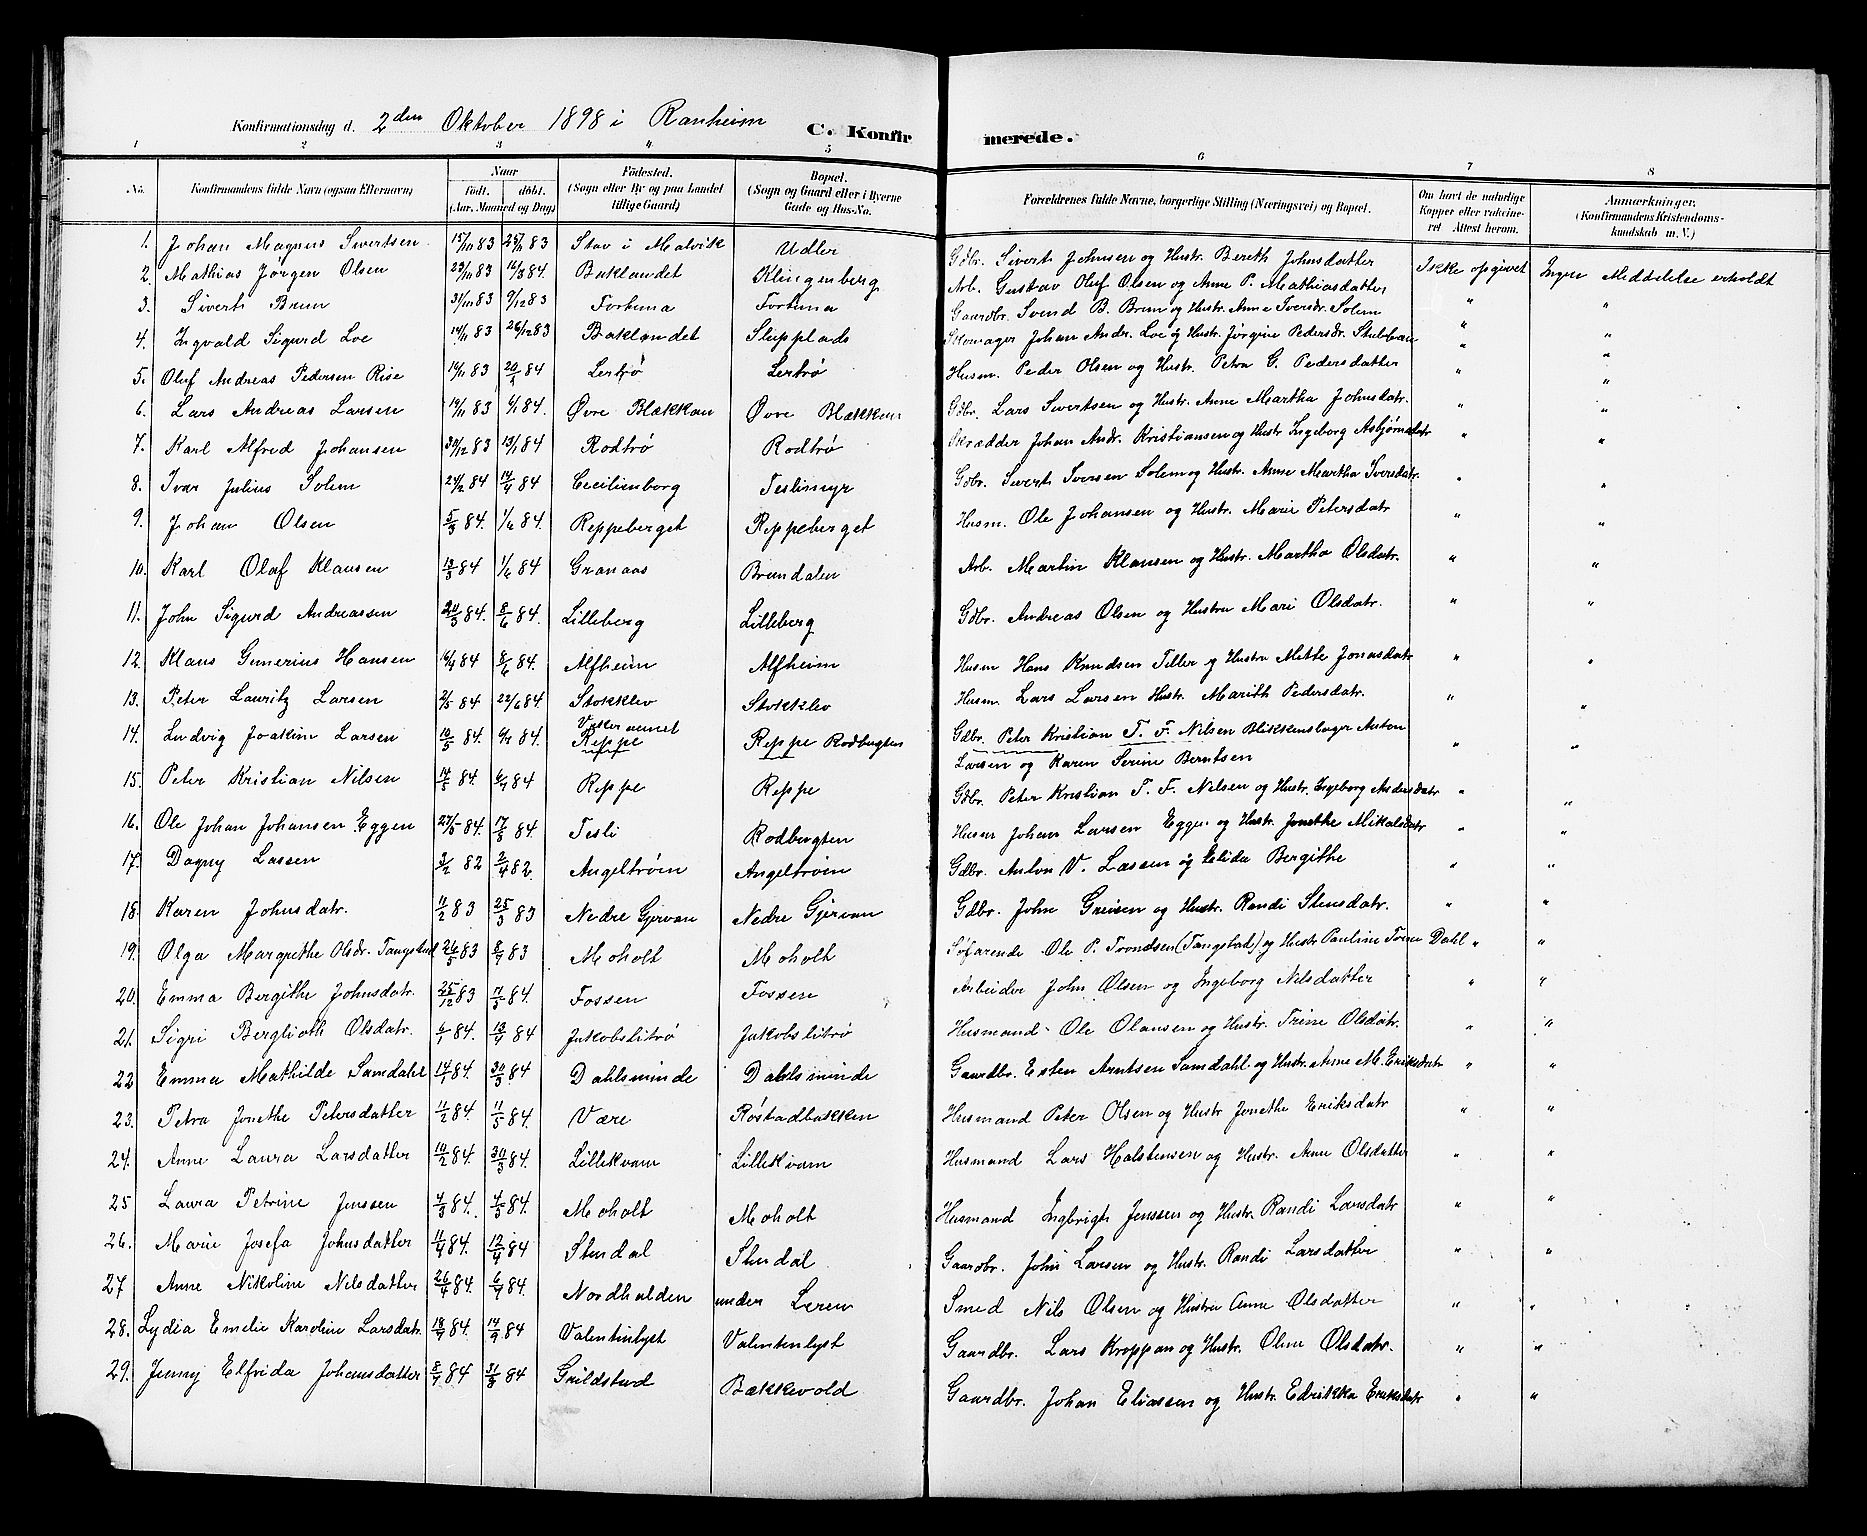 Konfirmationsdag d. 2den Oktober 1898 i Ranheim C. Konfirmerede.
1 2 3 4 5 6 7 8
No. Konfirmandens fulde Navn (ogsaa Efternavn) Naar født. døbt. (Aar, Maaned og Dag) Fødested. (Sogn eller By og paa Landet tillige Gaard) Bopæl. (Sogn og Gaard eller i Byerne Gade og Hus-No. Forældrenes fulde Navne, borgerlige Stilling (Næringsvei) og Bopæl. Om havt de naturlige Kopper eller vaccineret Attest herom. Anmærkninger. (Konfirmandens Kristendomskundskab m. V.)
1. Johan Magnus Sivertsen 15/10 83 25/11 83 Stav i Malvik Udler Gdbr. Sivert Johnsen og Hustr. Bereth Johnsdatter Ikke opgivet Ingen Meddelelse erholdt
2. Mathias Jørgen Olsen 29/11 83 16/3 84. Baklandet Klingenberg Arb. Gustav Oluf Olsen og Anne P. Mathiasdatter " "
3. Sivert Brun 31/10 83 9/12 83 Fortuna Fortuna Gaardbr. Svend B. Brun og Hustr. Anne Iversdr. Solem " "
4. Ingvald Sigurd Loe 14/11 83 26/12 83 Baklandet Stupplads Skomager Johan Andr. Loe og Hustr. Jørgine Pedersdr. Stubban " "
5. Oluf Andreas Pedersen Rise 16/11 83 20/1 84 Lertrø Lertrø Husm. Peder Olsen og Hustr. Petra G. Pedersdatter " "
6. Lars Andreas Larsen 19/11 83 6/1 84. Øvre Blækkan Øvre Blækken Gdbr. Lars Sivertsen og Hustr. Anne Martha Johnsdatr. " "
7. Karl Alfred Johansen 30/12 83 13/1 84 Rodtrø Rodtrø Skrædder Johan Andr. Kristiansen og Hustr Ingeborg Asbjørnsdatr " "
8. Ivar Julius Solem 24/2 84 14/4 84 Cecilienborg Teslimyr Gdbr. Sivert Iversen Solem og Hustr. Anne Martha Iversdatr. " "
9. Johan Olsen 5/3 84. 1/6 84. Reppeberget Reppeberget Husm. Ole Johansen og Hustr. Marie Petersdatr " "
10. Karl Olaf Klausen 13/3 84 1/6 84 Granaas Brundalen Arb. Martin Klausen og Hustr. Martha Olsdatr. " "
11. John Sigurd Andreassen 20/3 84. 8/6 84. Lilleberg Lilleberg Gdbr. Andreas Olsen og Hustru Mari Olsdatr. " "
12. Klaus Gunerius Hansen 16/4 84 8/6 84. Alfheim Alfheim Husm Hans Knudsen Tiller og Hustru Mette Jonasdatr " "
13. Peter Lauritz Larsen 2/5 84 22/6 84 Stokklev Stokklev Husm. Lars Larsen Hustr. Marith Pedersdatr. " "
14. Ludvig Joakim Larsen 10/5 84. 6/7 84. Reppe Reppe Rodbergten Gdbr. Peter Kristian T. F. Nilsen Blikkenslager Anton
Larsen og Karen Serine Berntsen " "
15. Peter Kristian Nilsen 14/5 84. 6/7 84 Reppe Reppe Gdbr. Peter Kristian T. F. Nilsen og Hustr. Ingeborg Andersdatr " "
16. Ole Johan Johansen Eggen 27/5 84. 17/8 84 Tesli Rodbergten Husm Johan Larsen Eggen og Hustr. Jonethe Mikalsdatr " "
17. Dagny Lassen 3/2 82 2/4 82. Angeltrøen Angeltrøen Gdbr. Anton V. Lassen og Elida Bergithe " "
18. Karen Johnsdatr. 11/2 83 25/3 83 Nedre Gjervan Nedre Gjervan Gdbr. John Greisen og Hustr. Randi Stensdatr. " "
19. Olga Margrethe Olsdr. Tangstad 26/5 83 8/7 83 Moholt Moholt Søfarende Ole P. Trondsen (Tangstad) og Hustr Pauline Trine Dahl " "
20. Emma Bergithe Johnsdatr. 25/12 83 7/3 84. Fossen Fossen Arbeider John Olsen og Ingeborg Nilsdatter " "
21. Sigri Berglioth Olsdatr. 6/1 84. 13/4 84 Jakobslitrø Jakobslitrø Husmand Ole Olausen og Hustr. Trine Olsdatr. " "
22 Emma Mathilde Samdahl 14/1 84. 30/3 84 Dahlsminde Dahlsminde Gaardbr. Esten Arntsen Samdahl. og Hustr. Anne M. Eriksdatr " "
23. Petra Jonethe Petersdatter 11/2 84. 11/5 84. Være Røstadbakken Husmand Peter Olsen og Hustr Jonethe Eriksdatr " "
24. Anne Laura Larsdatter 10/2 84. 30/3 84. Lillekvam Lillekvam Husmand Lars Halstensen og Hustr. Anne Olsdatter " "
25 Laura Petrine Jenssen 4/3 84. 4/5 84. Moholt Moholt Husmand Ingbrigt Jenssen og Hustr. Randi Larsdatr " "
26. Marie Josefa Johnsdatter 11/4 84. 12/4 84 Stendal Stendal Gaardbr. John Larsen og Hustr. Randi Larsdatter " "
27 Anne Nikoline Nilsdatter 26/4 84. 6/7 84. Nordhalden under Leren Smed Nils Olsen og Hustru Anne Olsdatter " "
28. Lydia Emelie Karoline Larsdatr. 18/7 84. 14/9 84 Valentinlyst Valentinlyst Gaardbr. Lars Kroppan og Hustr. Oline Olsdatr. " "
29. Jenny Elfrida Johansdatter 8/7 84 31/8 84 Grildstad Bækkevold Gaardbr. Johan Eliassen og Hustr. Edrikka Eriksdatr " "